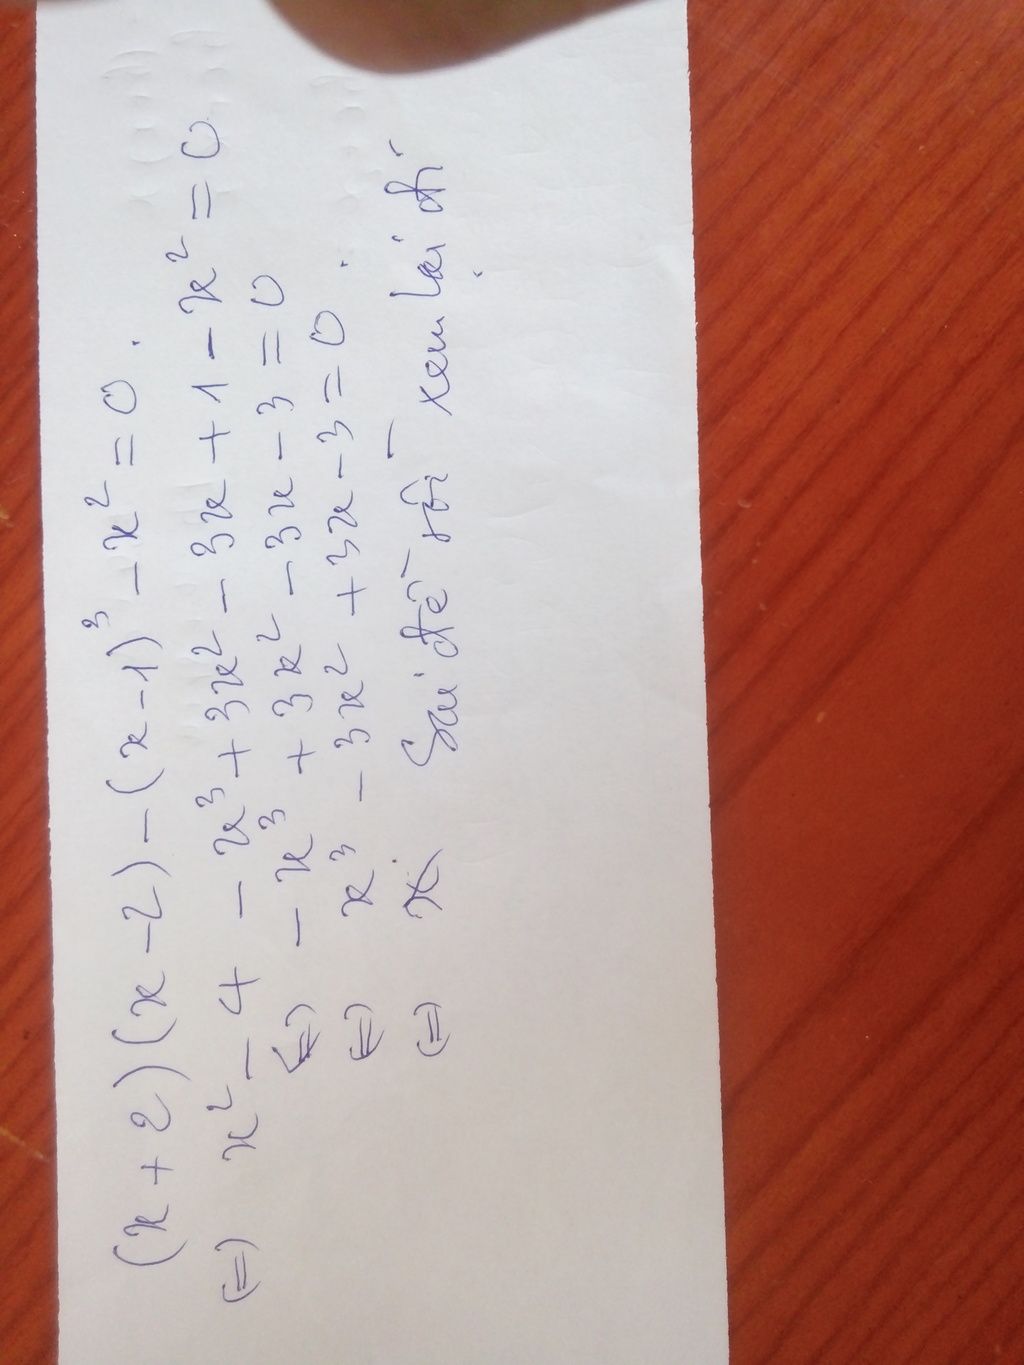 (x+2)(x-2)-(x-1)³-x²=0.
(=) x²-4-x³+3x²-3x+1-x²=0
(=) -x³+3x²-3x-3=0
(=) x³-3x²+3x-3=0.
(=) x Sai đề rồi xem lại đi